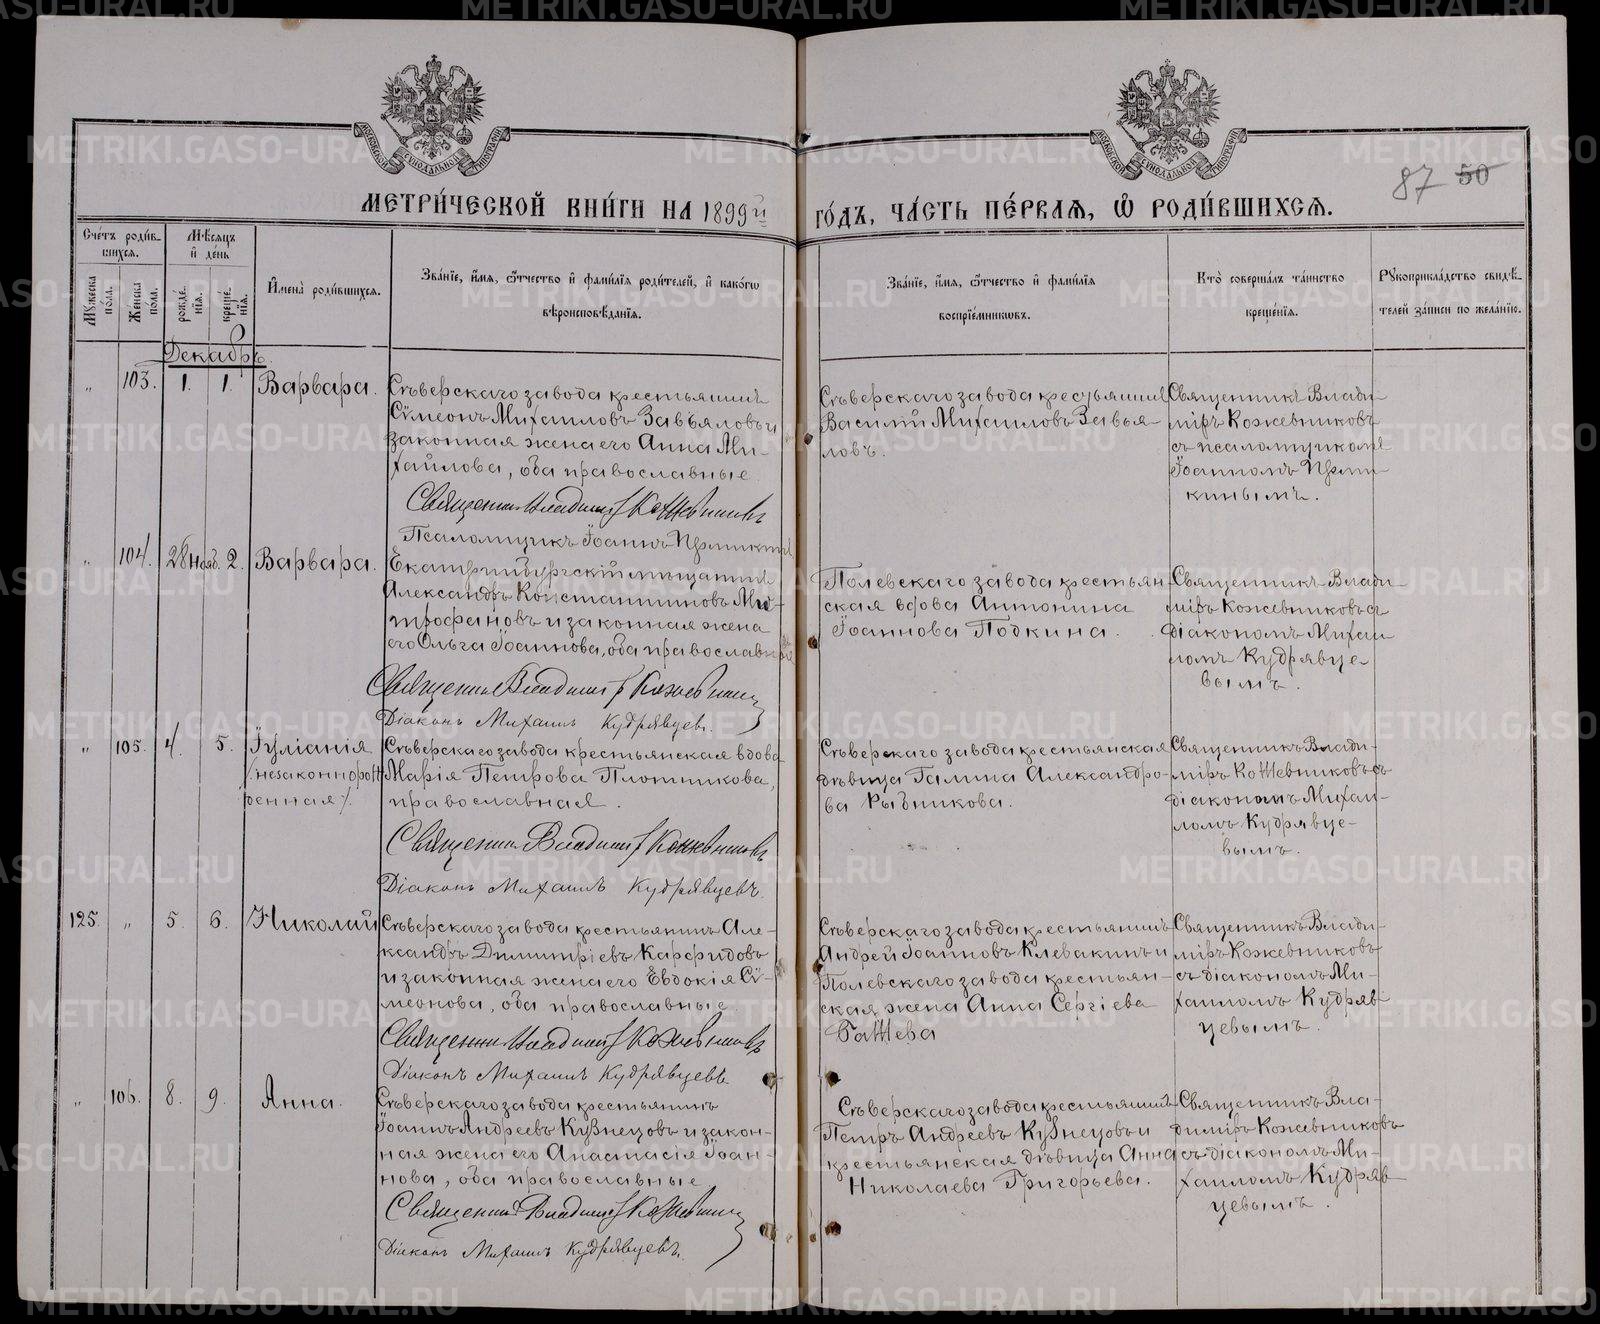 МЕТРИ́ЧЕСКОЙ КНИ́ГИ НА 1899й ГО́ДЪ, ЧА́СТЬ ПЕ́РВАЯ, Ѡ҆ РОДИ́ВШИХСЯ.
87 50
Сче́тъ роди́вшихся.
Мꙋ́жеска по́ла.
Же́нска по́ла.
Мѣ́сяцъ и҆ де́нь
рожде́нїя.
креще́нїя.
И҆мена̀ роди́вшихся.
Зва́нїе, и҆́мя, ѻ҆́тчество и҆ фами́лїя роди́телей, и҆ како́гѡ
вѣроисповѣ́данїя.
Зва́нїе, и҆́мя, ѻ҆́тчество и҆ фами́лїя
воспрїе́мниковъ.
Кто̀ соверша́лъ та́инство
креще́нїя.
Рꙋкоприкла́дство свидѣ́телей за́писи по жела́нїю.
Декабрь.
„ 103. 1. 1. Варвара.
Сѣверскаго завода крестьянинъ
Сѵмеонъ Михаиловъ Завьяловъ и
законная жена его Анна Ми-
хайлова, оба православные
Священникъ Владиміръ Кожевниковъ
Псаломщикъ Іоаннъ
Сѣверскаго завода крестьянинъ
Василій Михаиловъ Завья-
ловъ.
Священникъ Влади-
міръ Кожевниковъ
съ псаломщикомъ
Іоанномъ
„ 104. 28 Нояб. 2. Варвара.
Екатеринбургскій мѣщанинъ
Александръ Константиновъ Мит-
рофановъ и законная жена
его Ольга Іоаннова, оба православные
Священникъ Владиміръ Кожевниковъ
Діаконъ Михаилъ Кудрявцевъ.
Полевскаго завода крестьян-
ская вдова Антонина
Іоаннова Подкина.
Священникъ Влади-
міръ Кожевниковъ съ
діакономъ Михаи-
ломъ Кудрявце-
вымъ.
„ 105. 4. 5. Іуліанія
/незаконнорож-
денная/.
Сѣверскаго завода крестьянская вдова
Марія Петрова Плотникова,
православная.
Священникъ Владиміръ Кожевниковъ
Діаконъ Михаилъ Кудрявцевъ.
Сѣверскаго завода крестьянская
дѣвица Галина Александро-
ва Рыбникова.
Священникъ Влади-
міръ Кожевниковъ съ
діакономъ Михаи-
ломъ Кудрявце-
вымъ.
125. „ 5. 6. Николай
Сѣверскаго завода крестьянинъ Але-
ксандръ Димитріевъ Карфидовъ
и законная жена его Евдокія Сѵ-
меонова, оба православные
Священникъ Владиміръ Кожевниковъ
Діаконъ Михаилъ Кудрявцевъ
Сѣверскаго завода крестьянинъ
Андрей Іоанновъ Клевакинъ и
Полевскаго завода крестьян-
ская жена Анна Сергіева
Бажева
Священникъ Влади-
міръ Кожевниковъ
съ діакономъ Ми-
хаиломъ Кудряв-
цевымъ.
„ 106. 8. 9. Анна.
Сѣверскаго завода крестьянинъ
Іоаннъ Андреевъ Кузнецовъ и закон-
ная жена его Анастасія Іоан-
нова, оба православные
Священникъ Владиміръ Кожевниковъ
Діаконъ Михаилъ Кудрявцевъ.
Сѣверскаго завода крестьянинъ
Петръ Андреевъ Кузнецовъ и
крестьянская дѣвица Анна
Николаева Григорьева.
Священникъ Вла-
диміръ Кожевниковъ
съ діакономъ Ми-
хаиломъ Кудряв-
цевымъ.
METRIKI.GASO-URAL.RU